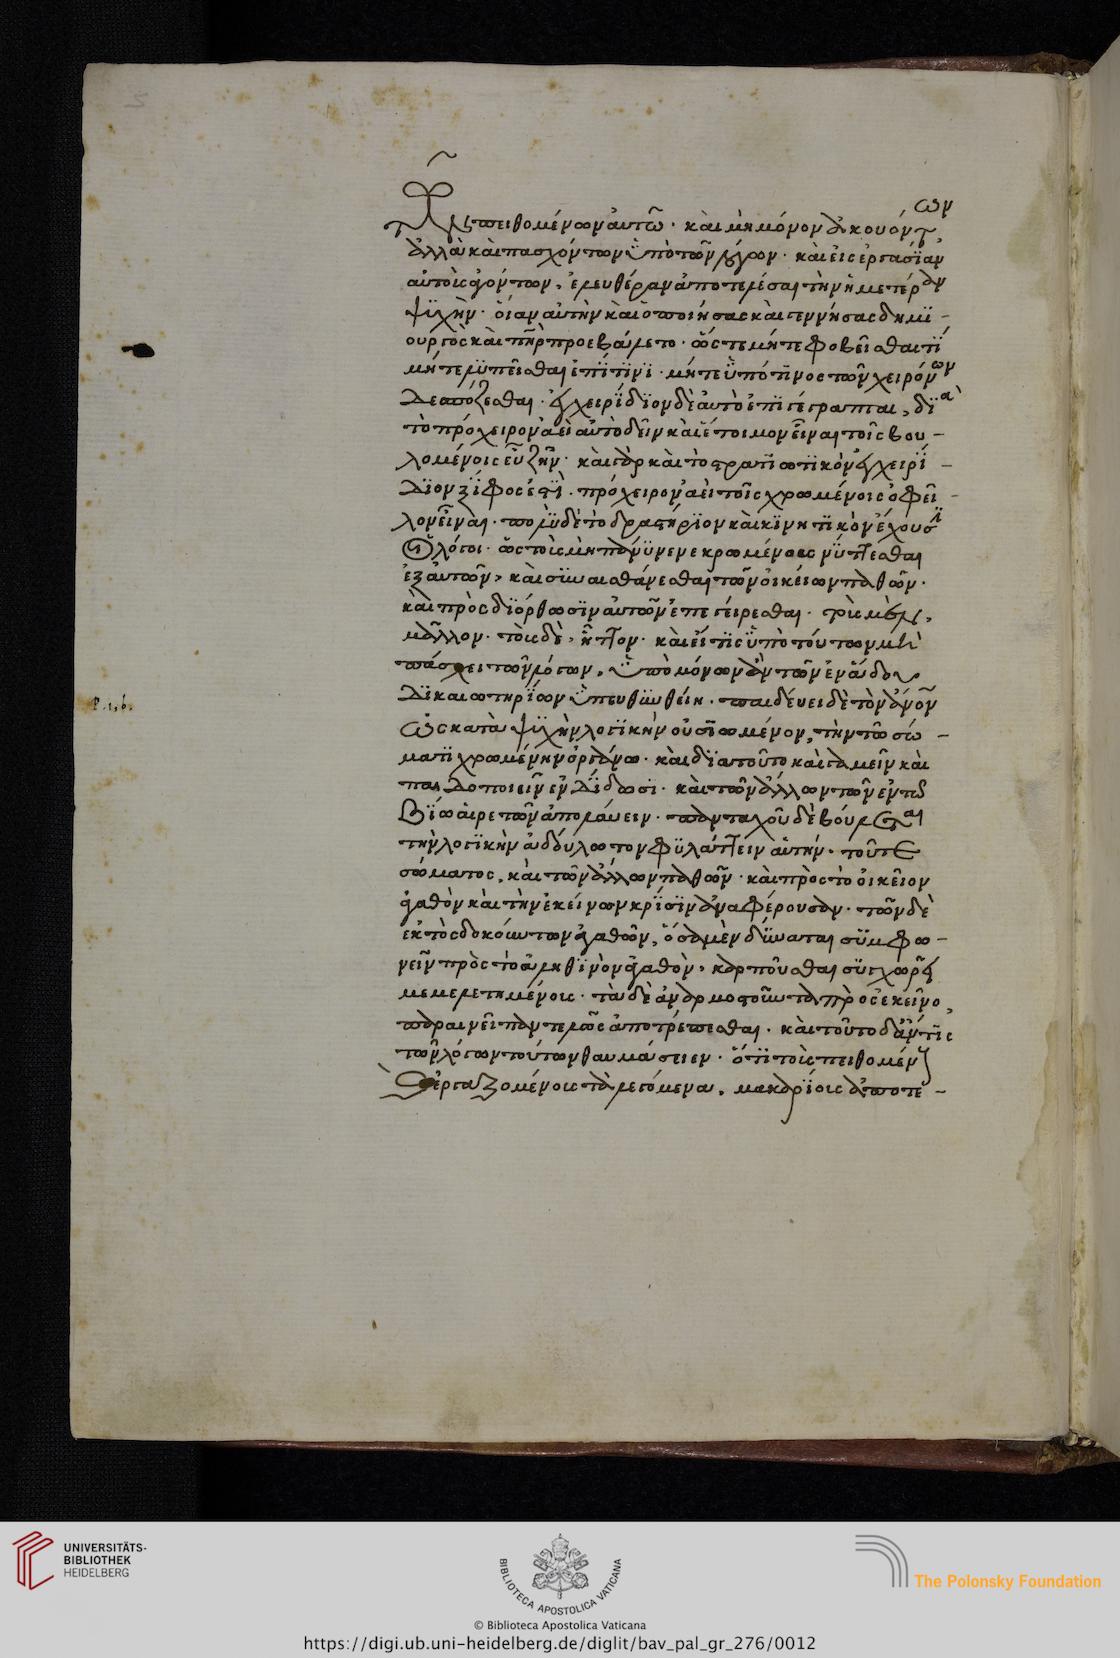 τῶν πειθομένων αὐτῶ· καὶ μὴ μόνον ἀκουόντων
ἀλλὰ καὶ πασχόντων ὑπὸ τῶν λόγων· καὶ εἰς ἐργασίαν
αὐτοὺς ἀγόντων, ἐλευθέραν ἀποτελέσαι τὴν ἡμετέραν
ψυχὴν· οἵαν αὐτὴν καὶ ὁ ποιήσας καὶ γεννήσας δημι-
ουργὸς καὶ πατὴρ προεβάλετο· ὥστε μήτε φοβεῖσθαι τί
μήτε λυπεῖσθαι ἐπί τινι· μήτε ὑπό τινος τῶν χειρόνων
δεσπόζεσθαι· ἐγχειρίδιον δὲ αὐτὸ ἐπιγέγραπται, διὰ
τὸ πρόχειρον ἀεὶ αὐτὸ δεῖν καὶ ἕτοιμον εἶναι τοῖς βου-
λομένοις εὖ ζῆν· καὶ γὰρ καὶ τὸ στρατιωτικὸν ἐγχειρί-
διον ξίφος ἐστὶ· πρόχειρον ἀεὶ τοῖς χρωμένοις ὀφεῖ-
λον εἶναι· πολὺ δὲ τὸ δραστήριον καὶ κινητικὸν ἔχουσι
οἱ λόγοι· ὡς τοὺς μὴ πάνυ νενεκρωμένους νύττεσθαι
ἐξ αὐτῶν, καὶ συναισθάνεσθαι τῶν οἰκείων παθῶν·
καὶ πρὸς διόρθωσιν αὐτῶν ἐπεγείρεσθαι· τοὺς μὲν,
μᾶλλον· τοὺς δὲ, ἧττον· καὶ εἴ τις ὑπὸ τούτων μὴ
πάσχει τῶν λόγων, ὑπὸ μόνων ἂν τῶν ἐν ἅδου
δικαιωτηρίων ὑπευθυνθείη· παιδεύει δὲ τὸν ἄνον
ὡς κατὰ ψυχὴν λογικὴν οὐσιωμένον, τὴν τῶ σώ-
ματι χρωμένην ὀργάνω· καὶ διατοῦτο καὶ γαμεῖν καὶ
παιδοποιεῖν ἐνδίδωσι· καὶ τῶν ἄλλων τῶν ἐν τῶ
βίω αἱρετῶν ἀπολάυειν· πανταχοῦ δὲ βούλεται
τὴν λογικὴν ἀδούλωτον φυλάττειν αὐτὴν· τοῦ τε
σώματος, καὶ τῶν ἄλλων παθῶν· καὶ πρὸς τὸ οἰκεῖον
ἀγαθὸν καὶ τὴν ἐκείνων κρίσιν ἀναφέρουσαν· τῶν δὲ
ἐκτὸς δοκούντων ἀγαθῶν, ὅσα μὲν δύναται συμφω-
νεῖν πρὸς τὸ ἀληθινὸν ἀγαθὸν, καρποῦσθαι συγχωρεῖ
μεμελετημένοις· τὰ δὲ ἀναρμοστοῦντα πρὸς ἐκεῖνο,
παραινεῖ παντελῶς ἀποτρέπεσθαι· καὶ τοῦτο δ' ἄν τις
τῶν λόγων τούτων θαυμάσειεν· ὅτι τοὺς πειθομένους
καὶ ἐργαζομένους τὰ λεγόμενα, μακαρίους ἀποτε-
P. 1, b.
UNIVERSITÄTS-
BIBLIOTHEK
HEIDELBERG
BIBLIOTECA APOSTOLICA VATICANA
The Polonsky Foundation
© Biblioteca Apostolica Vaticana
https://digi.ub.uni-heidelberg.de/diglit/bav_pal_gr_276/0012